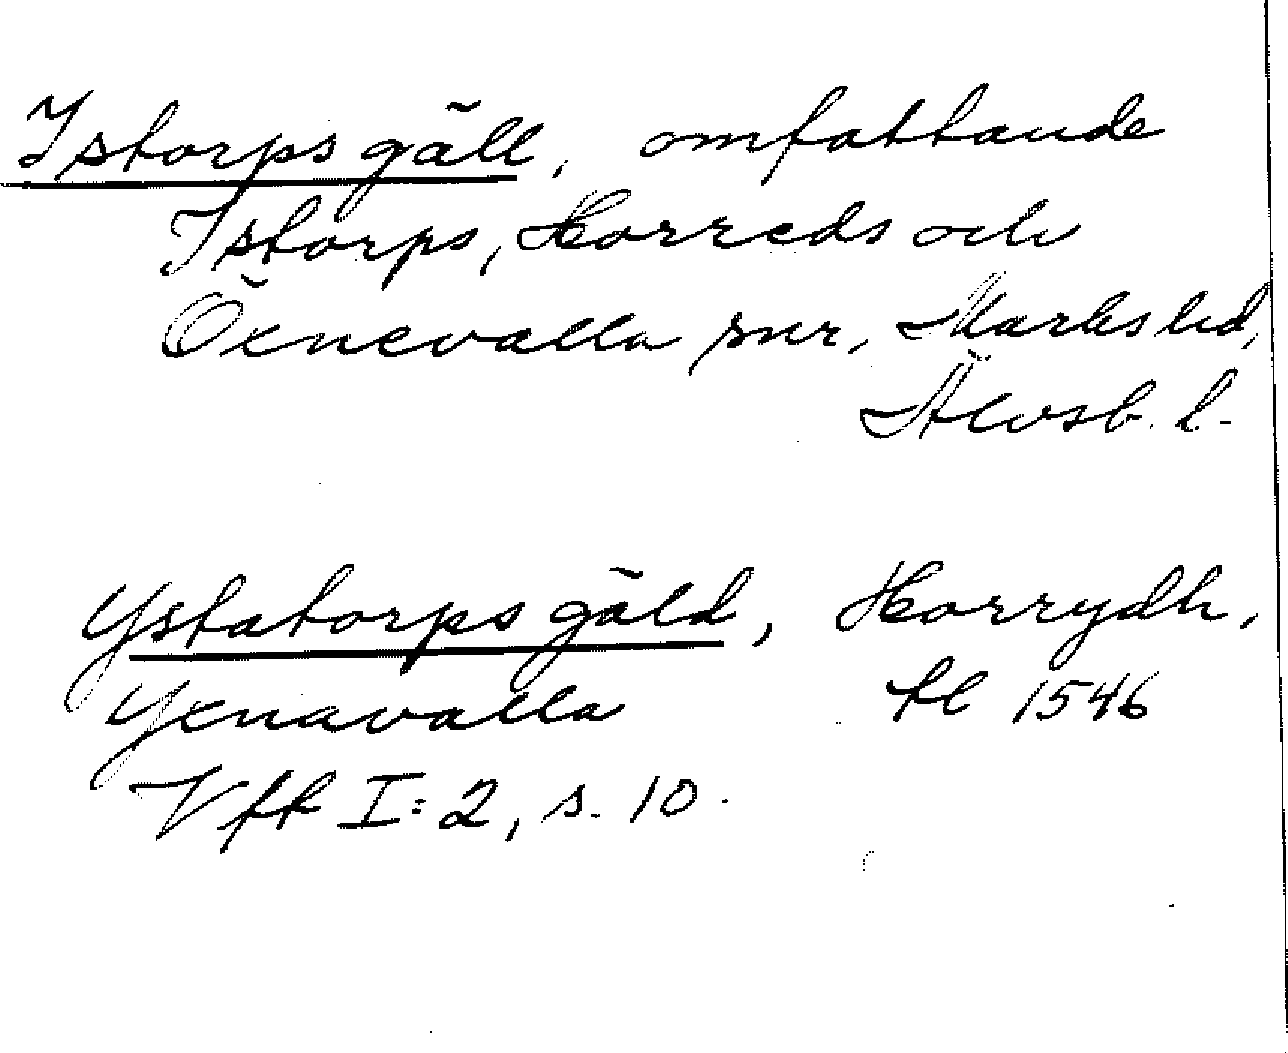 Istorps gäll, omfattande
Istorps, Horreds och
Öxnevalla snr, Marks hd,
Älvsb. l.
Ystatorps gäld, Horrydh,
Yxnavalla fl 1546
Vff I:2, s. 10.